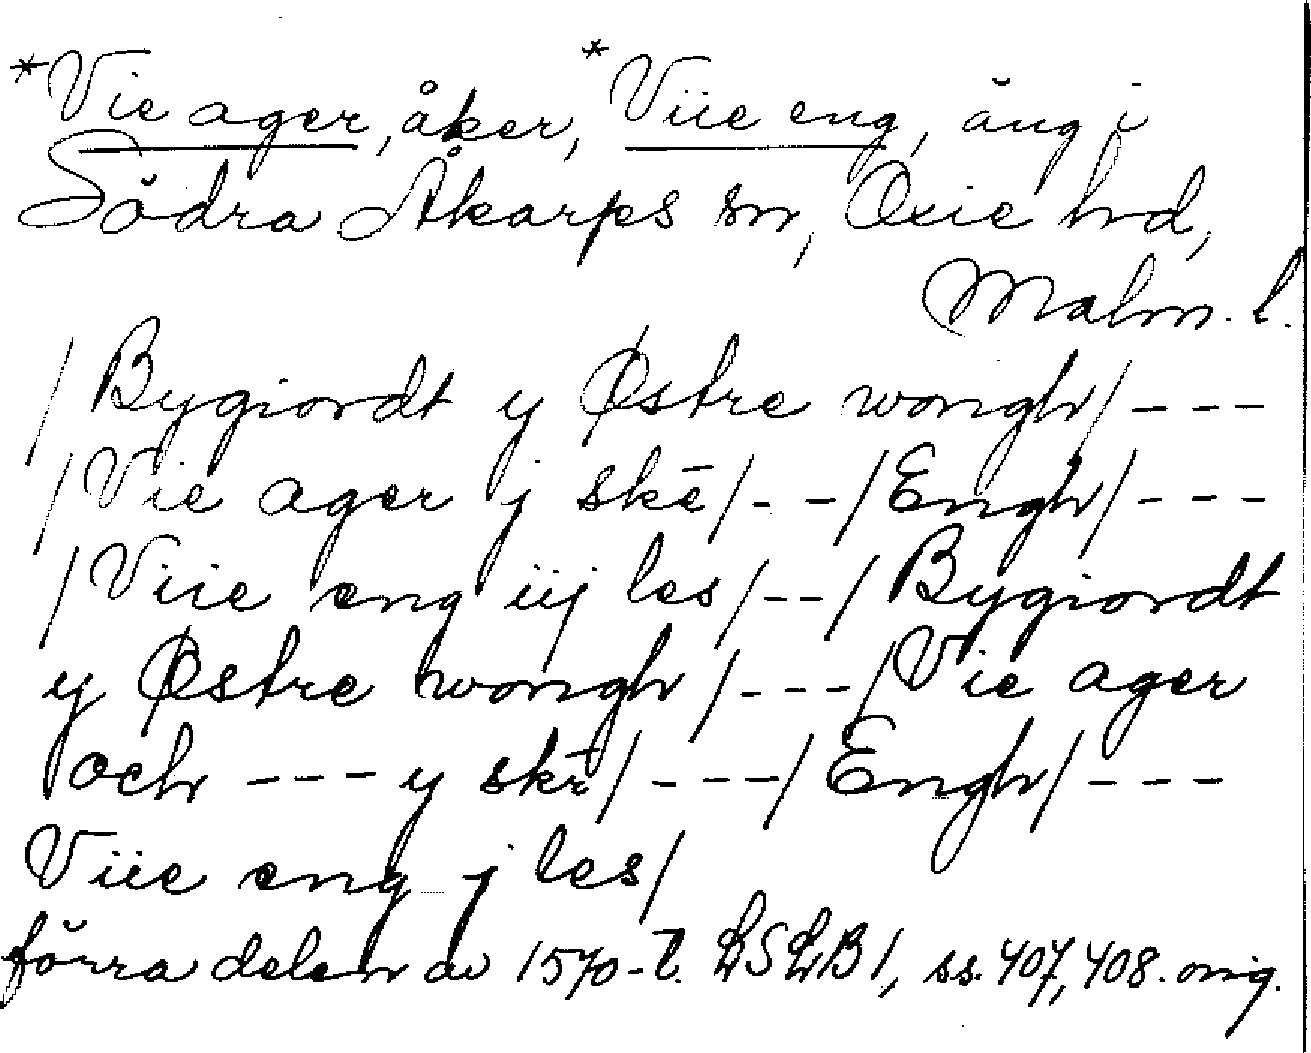 *Vie ager, åker, *Viie eng, äng i
Södra Åkarps sn, Oxie hd,
Malm. l.
/Bygiordt y Østre wongh/---
/Vie ager j skē/---/Engh/---
/Viie eng iij les/--/Bygiordt
y Østre wongh/---/Vie ager
och --- y skē/---/Engh/---
Viie eng j les/
förra delen av 1570-t. LSLB 1, ss. 407, 408. orig.